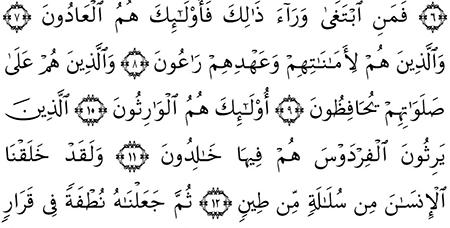 ﴿٦﴾ فَمَنِ ٱبْتَغَىٰ وَرَآءَ ذَٰلِكَ فَأُو۟لَـٰٓئِكَ هُمُ ٱلْعَادُونَ ﴿٧﴾
وَٱلَّذِينَ هُمْ لِأَمَـٰنَـٰتِهِمْ وَعَهْدِهِمْ رَٰعُونَ ﴿٨﴾ وَٱلَّذِينَ هُمْ عَلَىٰ
صَلَوَٰتِهِمْ يُحَافِظُونَ ﴿٩﴾ أُو۟لَـٰٓئِكَ هُمُ ٱلْوَٰرِثُونَ ﴿١٠﴾ ٱلَّذِينَ
يَرِثُونَ ٱلْفِرْدَوْسَ هُمْ فِيهَا خَـٰلِدُونَ ﴿١١﴾ وَلَقَدْ خَلَقْنَا
ٱلْإِنسَـٰنَ مِن سُلَـٰلَةٍ مِّن طِينٍ ﴿١٢﴾ ثُمَّ جَعَلْنَـٰهُ نُطْفَةً فِى قَرَارٍ